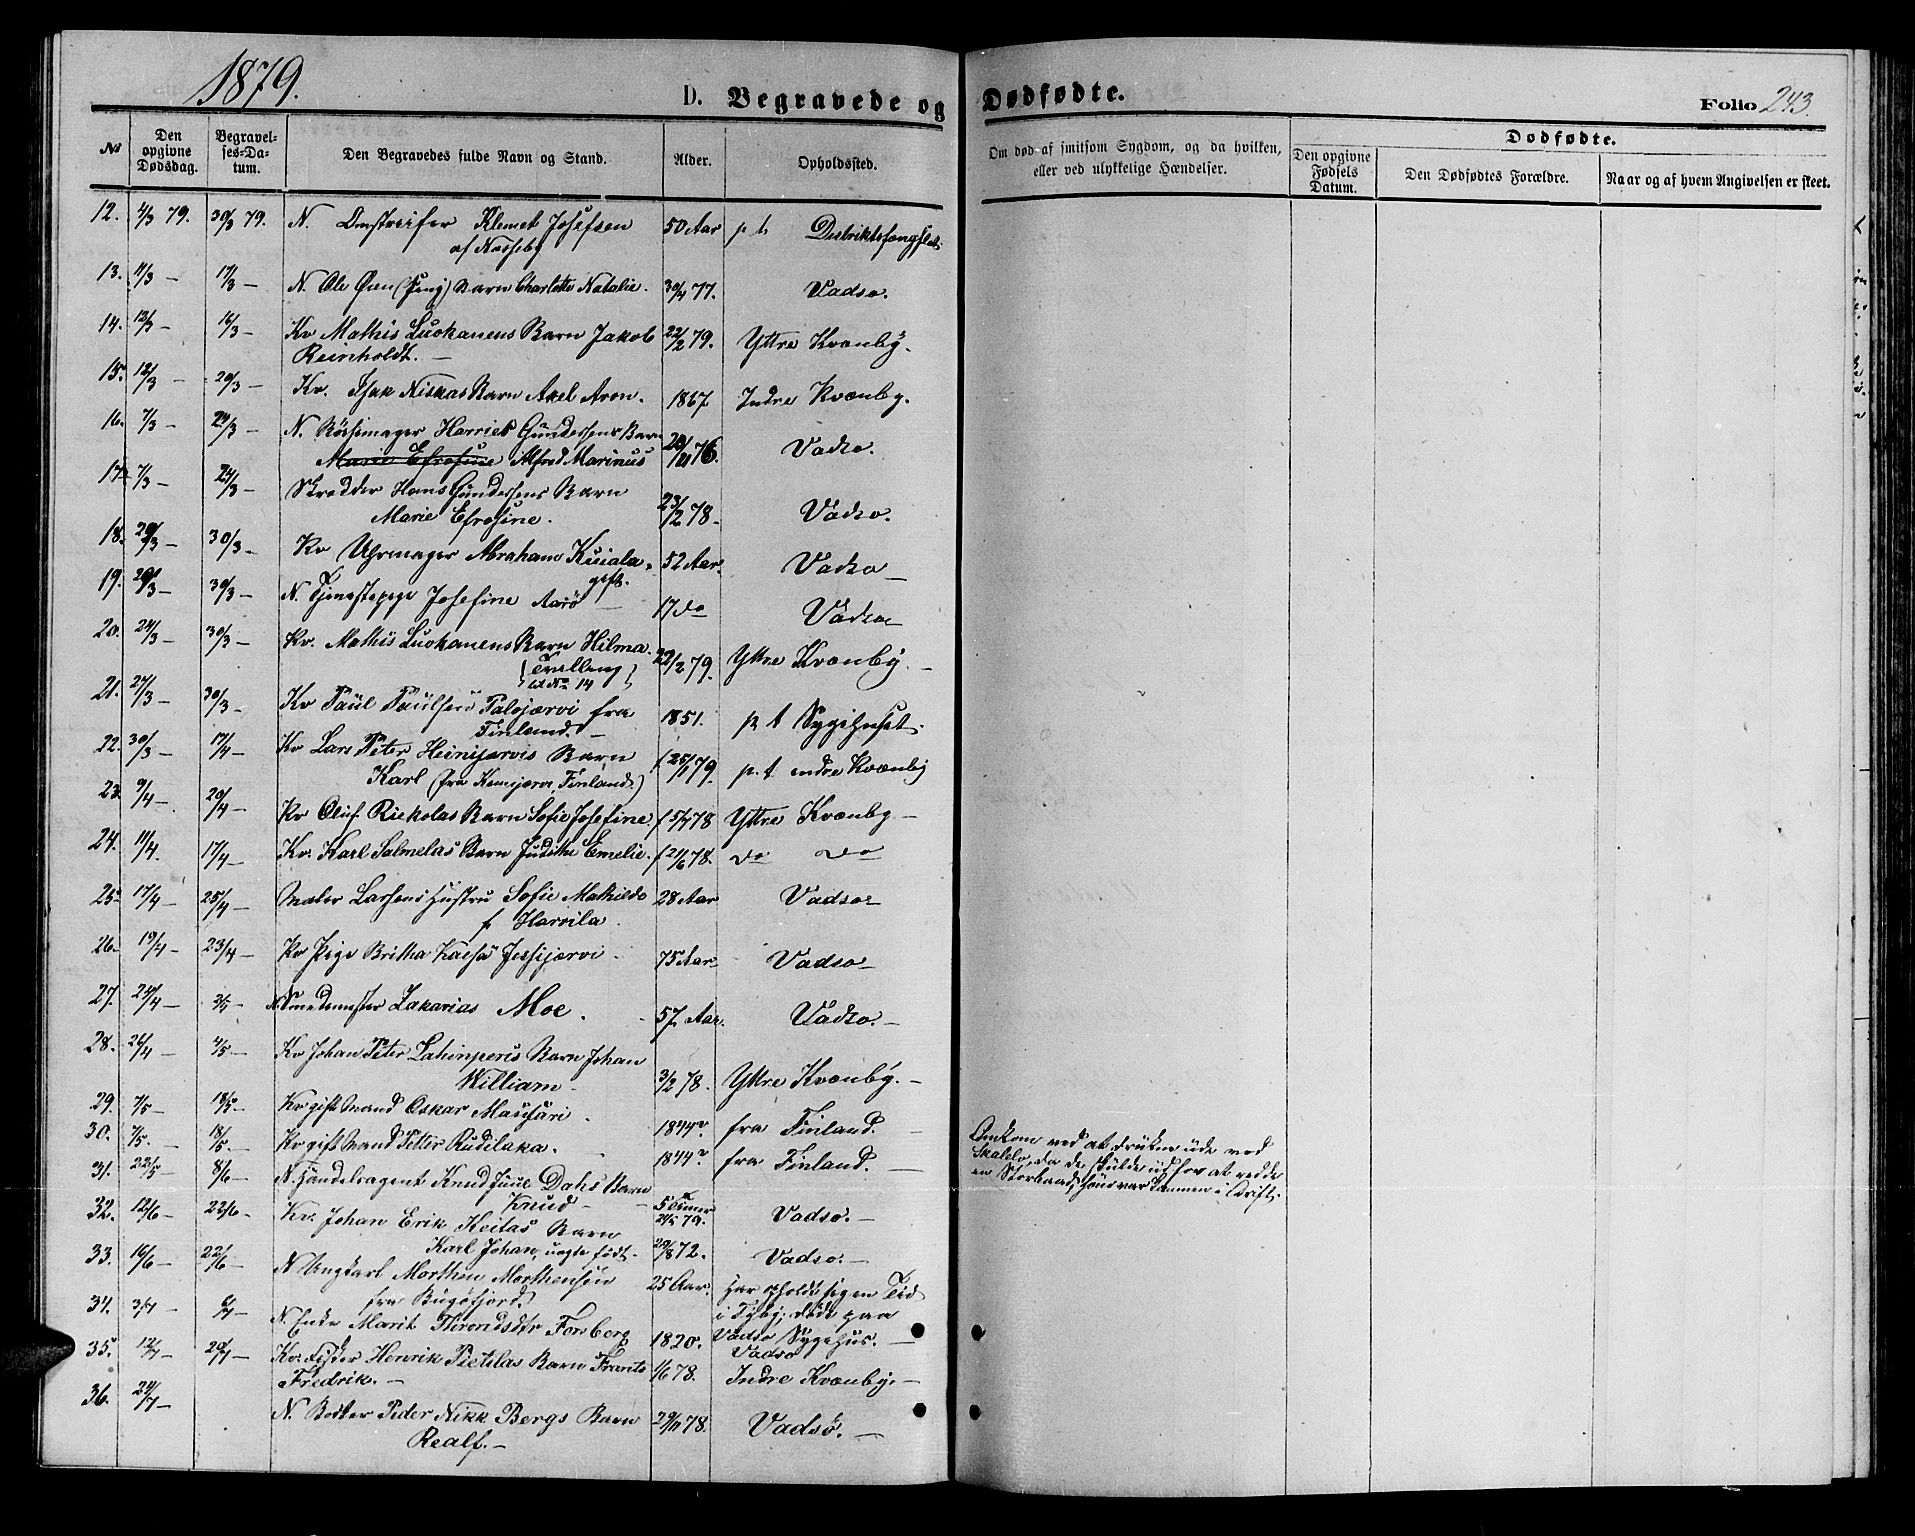 1879.
D. Begravede og Dødfødte.
Folio 243.
No
Den opgivne Dødsdag.
Begravelses-Datum.
Den Begravedes fulde Navn og Stand.
Alder.
Opholdssted.
Om død af smitsom Sygdom, og da hvilken, eller ved ulykkelige Hændelser.
Dødfødte.
Den opgivne Fødsels Datum.
Den Dødfødtes Forældre.
Naar og af hvem Angivelsen er skeet.
12. 4/3 79. 30/3 79. N. Omstreifer Klemet Josefsen 50 Aar p t. Distriktsfængslet
af Nesseby
13. 11/3 — 17/3 — N. Ole Øien (Seny) Barn Charlotte Natalie. 30/4 77. Vadsø.
14. 12/3 — 16/3 — Kv Mathis Luokanens Barn Jakob 22/2 79. Yttre Kvænby.
Reinholdt. —
15. 12/3 — 20/3 — Kv. Isak Niskas Barn Axel Aron. 1867 Indre Kvænby.
16. 7/3 — 24/3 — N. Børsemager Gundersens Barn
Marie Efrosine Alfred Marinus 76. Vadsø.
17. 7/3 — 24/3 — Skrædder Hans Gundersens Barn
Marie Efrosine. 23/2 78. Vadsø.
18. 20/3 — 30/3 — Kv Uhrmager Abraham Kuiala, 52 Aar. Vadsø
gift.
19. 20/3 — 30/3 — N. Tjenestepige Josefine Aarø — 17 do Vadsø
20. 24/3 — 30/3 — Kv. Mathis Luokanens Barn Hilma. 22/2 79. Yttre Kvænby. —
(Tvilling
til No 14)
21. 27/3 — 30/3 — Kv Paul Paulsen Palojærvi fra 1851. p t Sygehuset.
Finland. —
22. 30/3 — 17/4 — Kv Lars Peter Heinijærvis Barn f 25/1 79. p. t indre Kvænby
Karl (fra Kemijærvi, Finland.)
23. 9/4 — 20/4 — Kv Oluf Riekolas Barn Sofie Josefine. f 5/7 78 Yttre Kvænby —
24. 11/4. 17/4 — Kv. Karl Salmelas Barn Judithe Emelie. f 21/6 78. do do
25. 17/4 — 25/4 — Maler Larsens Hustru Sofie Mathilde 28 Aar Vadsø
f. Harrila.
26. 19/4 — 23/4 — Kv Pige Britha Kaisa Jessijærvi. 75 Aar Vadsø
27. 24/4 — 3/5 — N. Smedemester Zakarias Moe. 57 Aar. Vadsø. —
28. 26/4 — 4/5 — Kv Johan Peter Lahinperis Barn Johan
William — 3/2 78. Yttre Kvænby. —
29. 7/5 — 18/5 — Kv gift Mand Oskar Mausari. 1844? fra Finland. —
30. 7/5. — 18/5. — Kv gift Mand Petter Rudilaka. 1844? fra Finland. —
Omkom ved at drukne ude ved
Skalelv, da de skulde ud for at redde
en Storbaad, som var kommen i Drift.
31. 22/5 — 8/6 — N. Handelsagent Knud Juul Dahs Barn
Knud — 5 Timer 79. Vadsø. —
32. 12/6 — 22/6 — Kv. Johan Erik Keitas Barn
Karl Johan, uægte født. 29/8 72. Vadsø. —
33. 16/6 — 22/6 — N Ungkarl Morthen Morthensen 25 Aar. Har opholdt sig en Tid
fra Bugøfjord. i byen; døde paa
Vadsø Sygehus. —
34. 3/7 — 6/7 — N. Enke Marit Throndsdtr Forsberg 1820. Vadsø
35. 12/7 — 20/7 — Kv. Fisker Henrik Pietilas Barn Frants 1/6 78. Indre Kvænby. —
Fredrik. —
36. 24/7 — N. Bødker Peder Nikk Bergs Barn 29/11 78. Vadsø. —
Realf. —